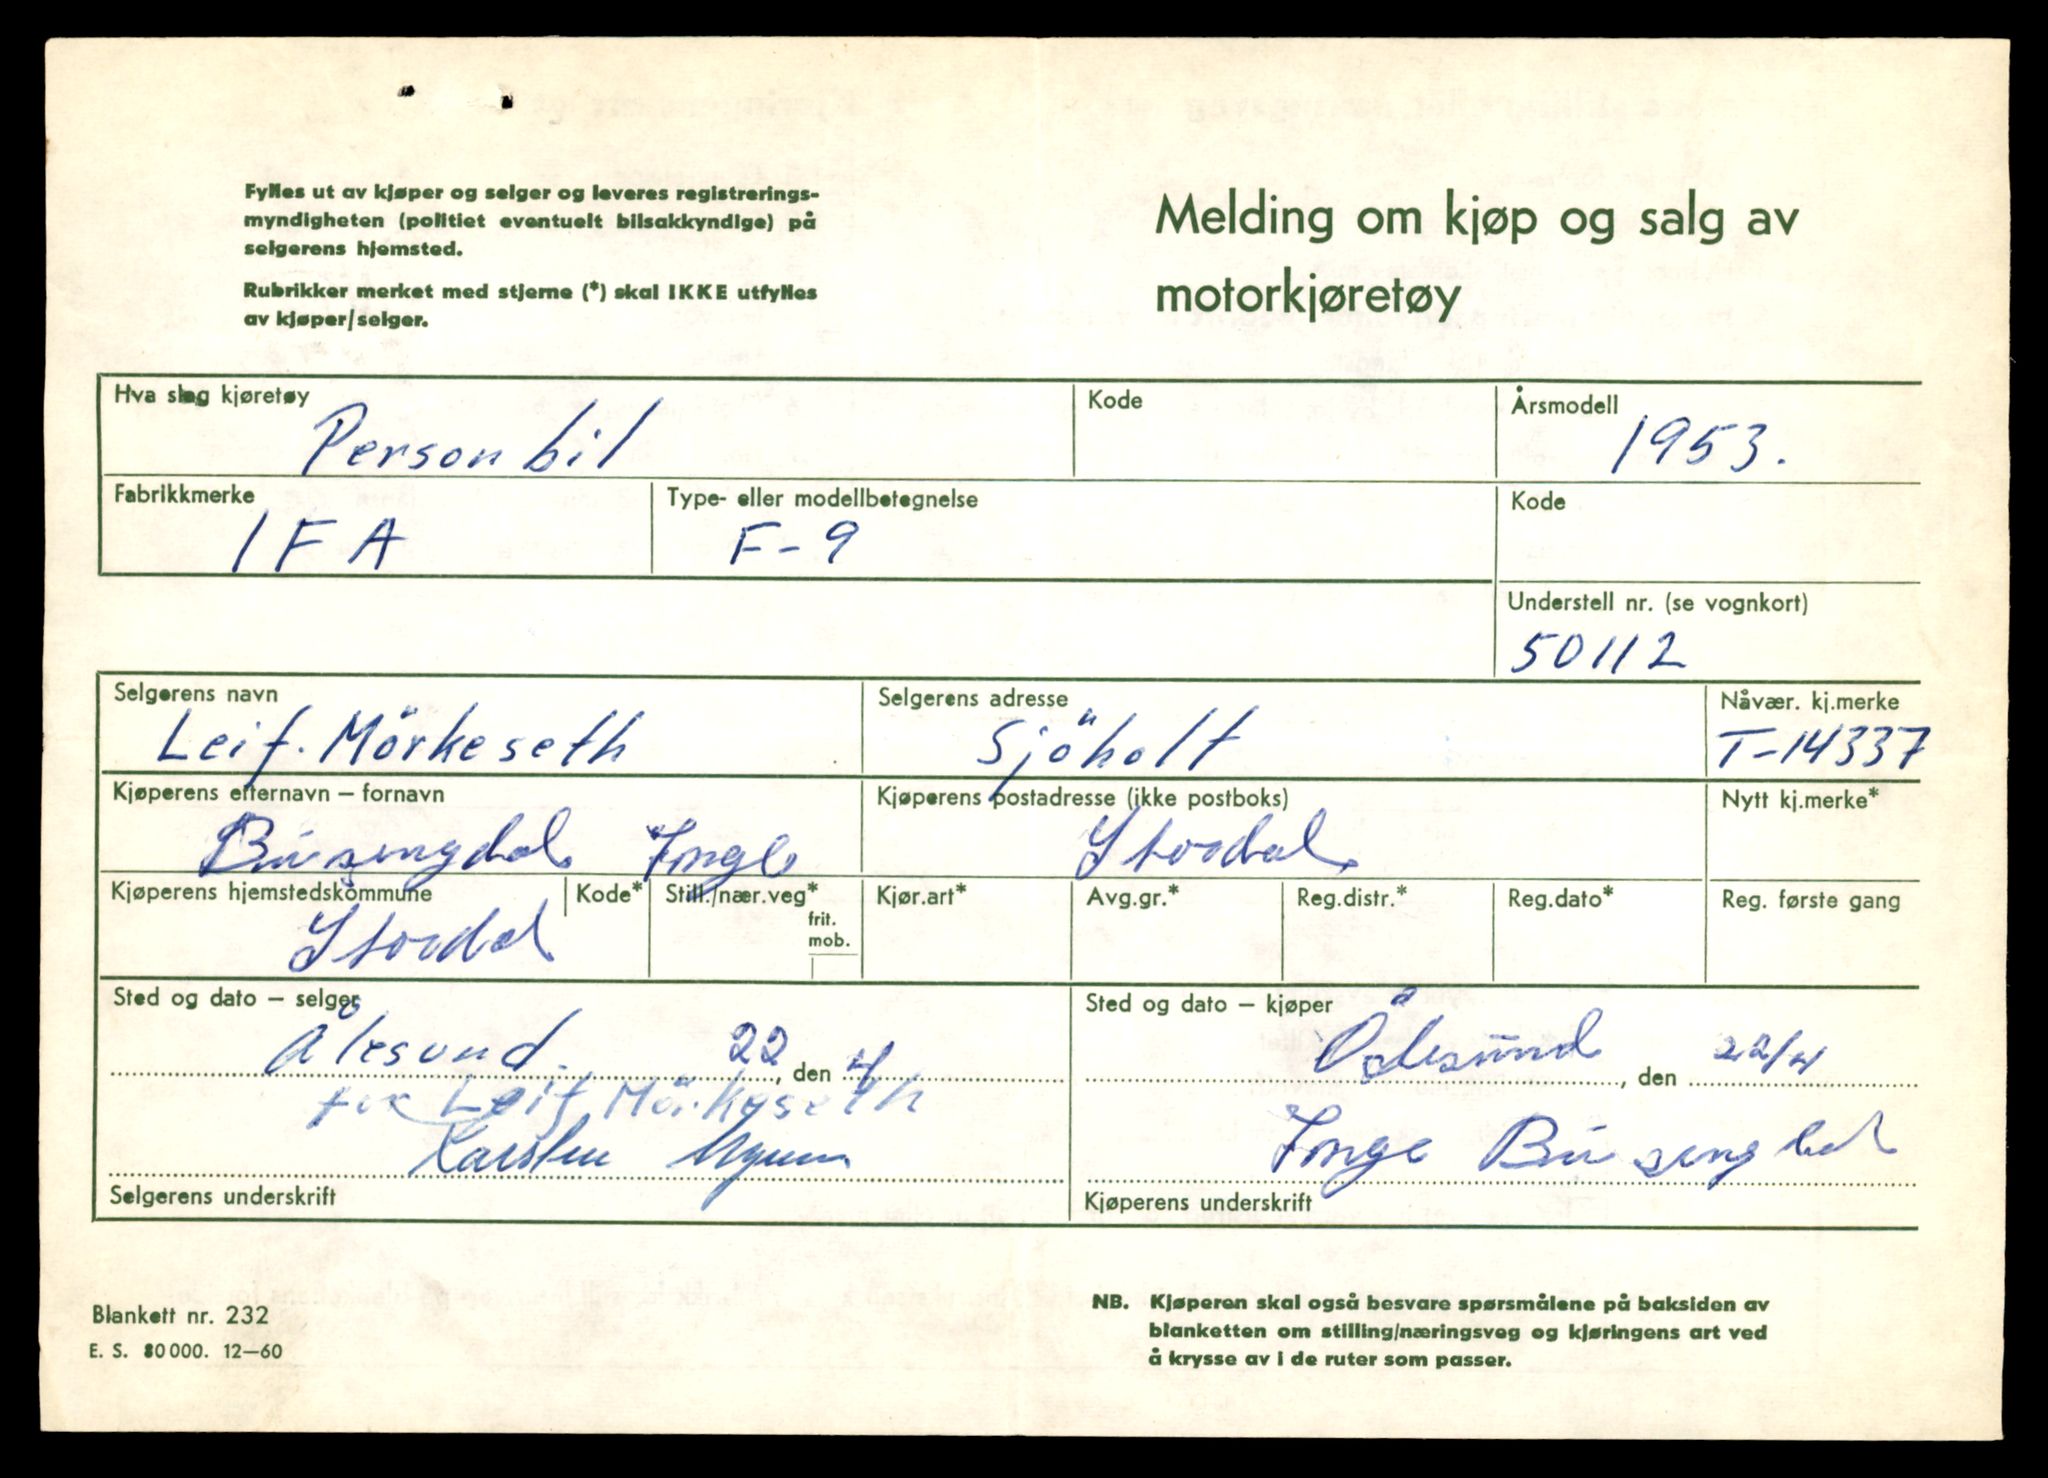 Fylles ut av kjøper og selger og leveres registrerings-
myndigheten (politiet eventuelt bilsakkyndige) på
selgerens hjemsted.
Rubrikker merket med stjerne (*) skal IKKE utfylles
av kjøper/selger.
Melding om kjøp og salg av
motorkjøretøy
Hva slag kjøretøy
Personbil
Kode
Årsmodell
1953.
Fabrikkmerke
IFA
Type- eller modellbetegnelse
F-9
Kode
Understell nr. (se vognkort)
50112
Selgerens navn
Leif. Mörkeseth
Selgerens adresse
Sjöholt
Nåvær. kj.merke
T-14337
Kjøperens etternavn – fornavn
Busengdal Inge
Kjøperens postadresse (ikke postboks)
Stordal
Nytt kj.merke*
Kjøperens hjemstedskommune
Stordal
Kode*
Still./nær.veg*
frit.
mob.
Kjør.art*
Avg.gr.*
Reg.distr.*
Reg.dato*
Reg. første gang
Sted og dato – selger
Ålesund. 22, den 4
for Leif Mörkeseth
Karsten
Selgerens underskrift
Sted og dato – kjøper
Ålesund, den 22/4
Inge Busengdal
Kjøperens underskrift
Blankett nr. 232
E. S. 80 000. 12–60
NB. Kjøperen skal også besvare spørsmålene på baksiden av
blanketten om stilling/næringsveg og kjøringens art ved
å krysse av i de ruter som passer.